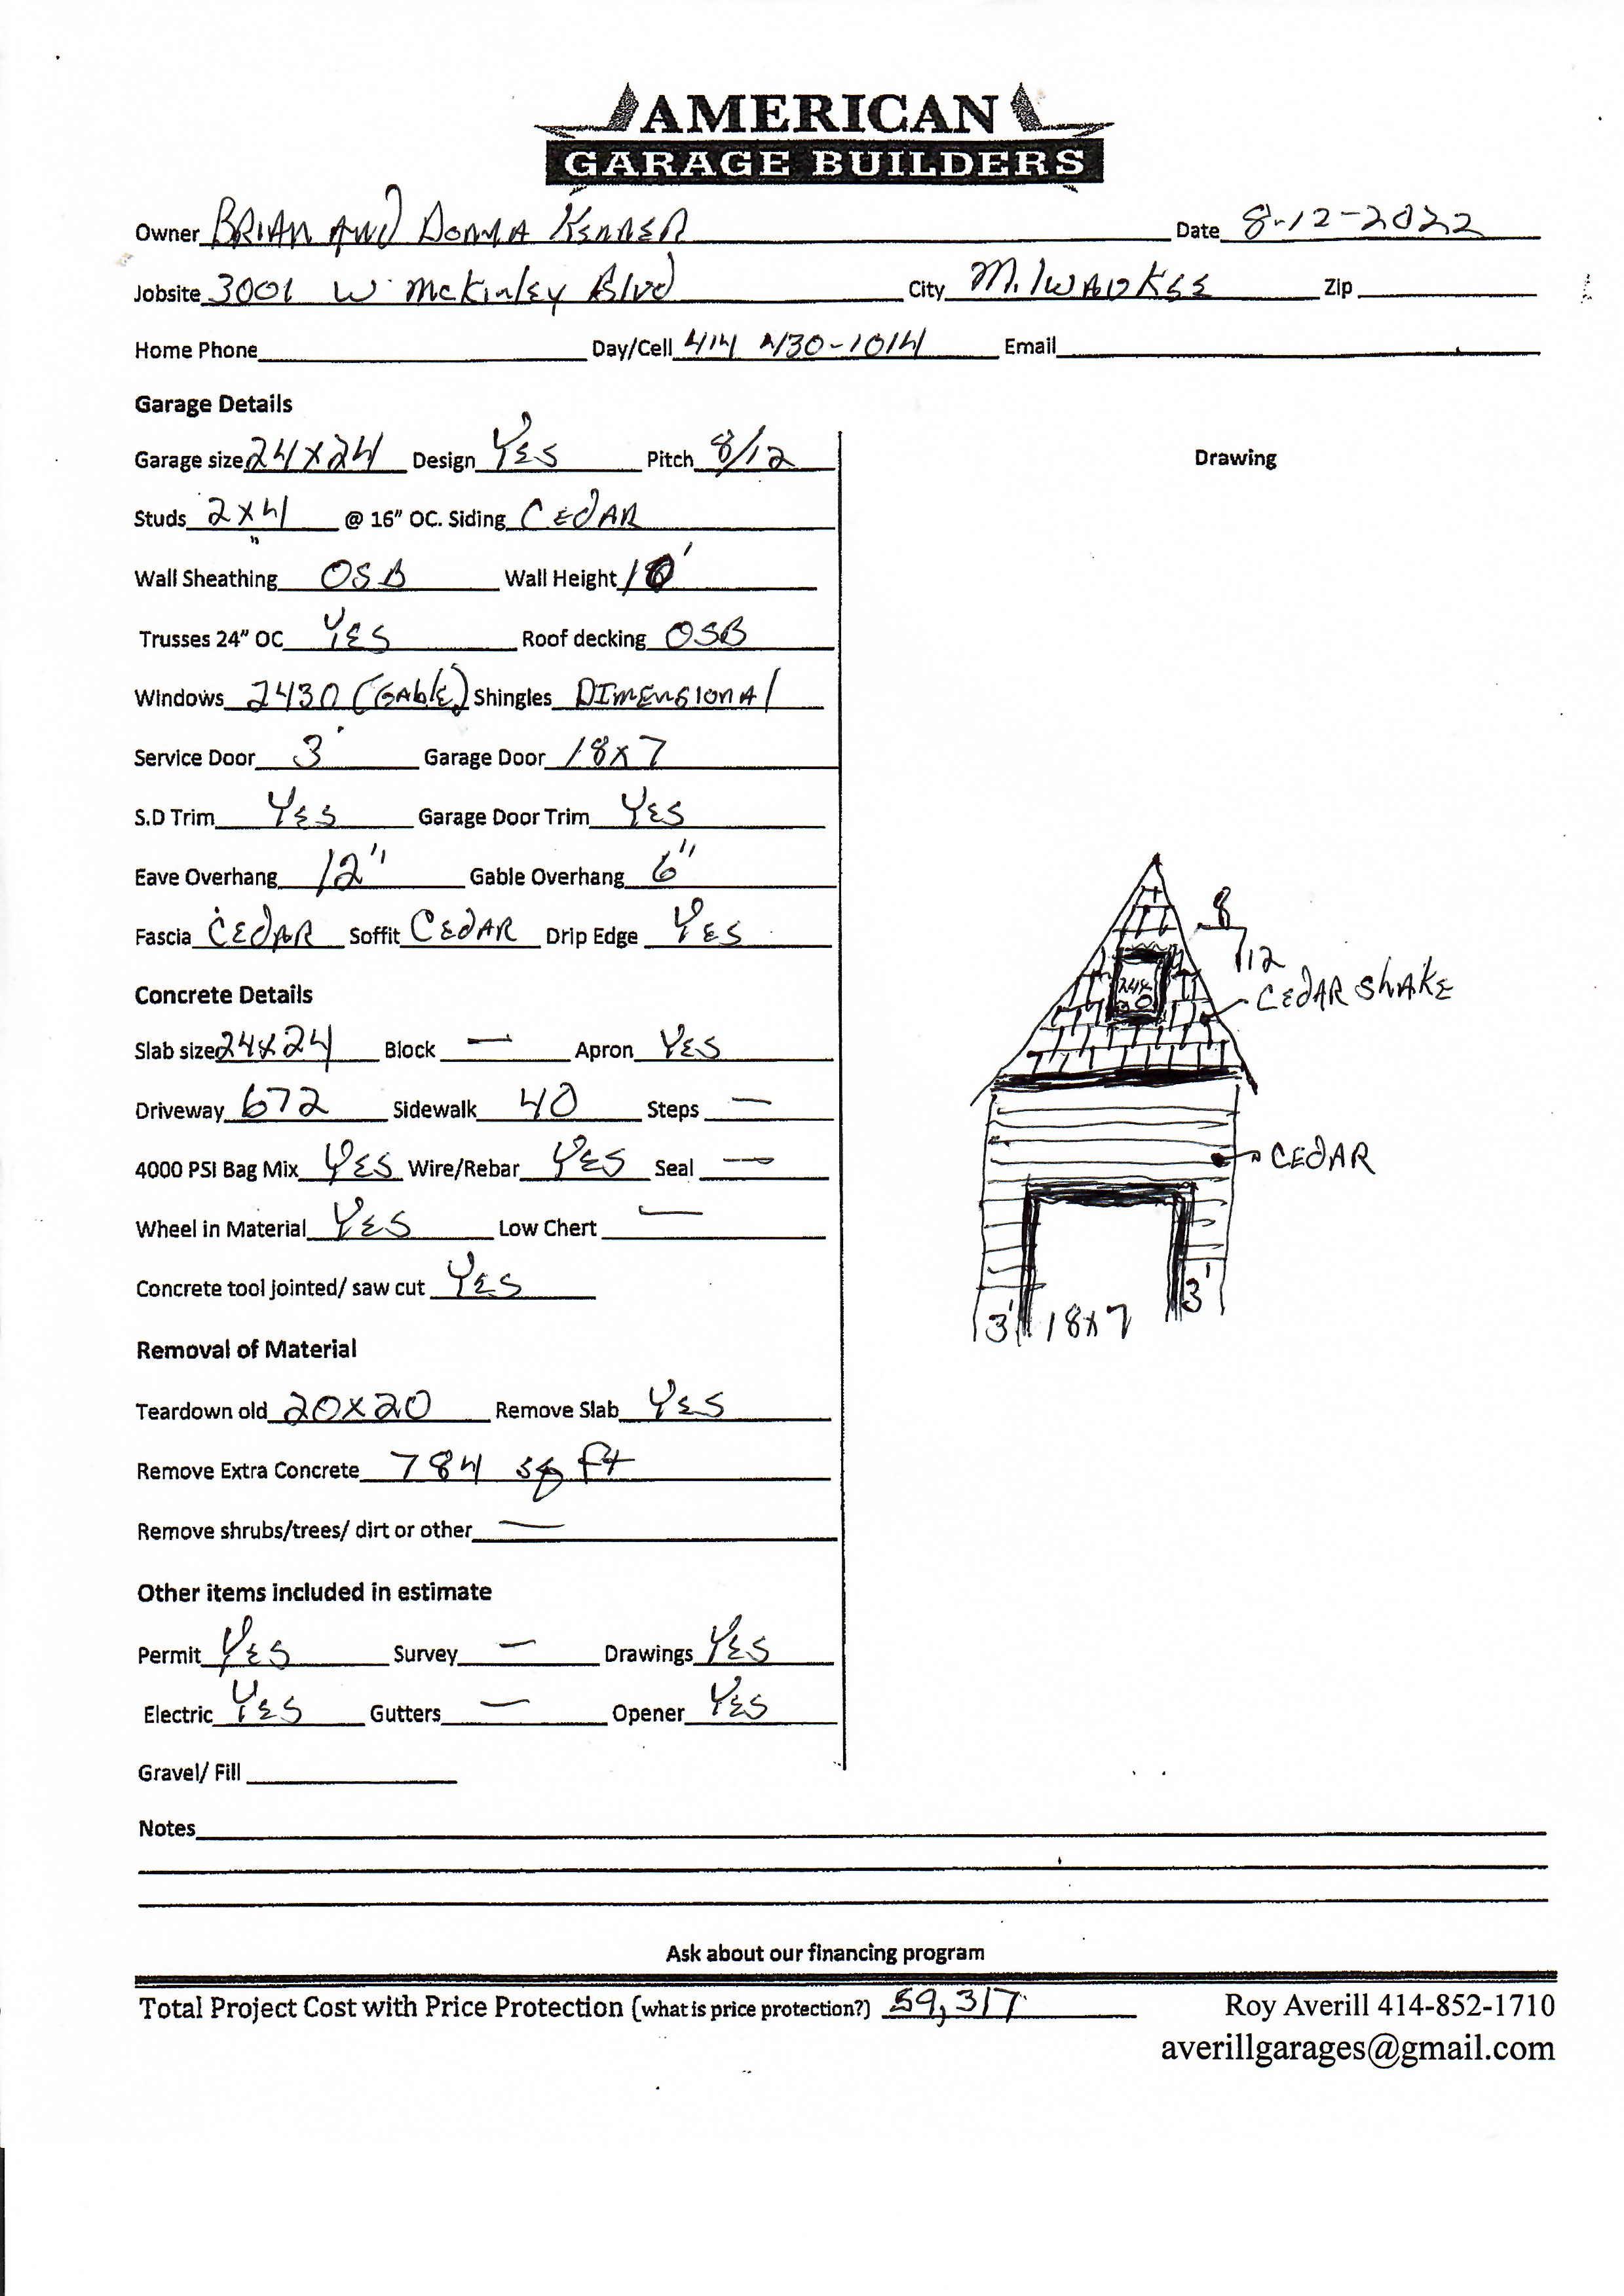 AMERICAN
GARAGE BUILDERS
Owner BRIAN AND DONNA KENNER Date 8-12-2022
Jobsite 3001 W. McKinley Blvd City MilWAUKEE Zip
Home Phone Day/Cell 414 430-1014 Email
Garage Details
Garage size 24x24 Design YES Pitch 8/12
Drawing
Studs 2x4 @ 16" OC. Siding CEDAR
Wall Sheathing OSB Wall Height 10'
Trusses 24" OC YES Roof decking OSB
Windows 2430 (GAblE) Shingles DIMENSIONAl
Service Door 3' Garage Door 18x7
S.D Trim YES Garage Door Trim YES
Eave Overhang 12" Gable Overhang 6"
Fascia CEDAR Soffit CEDAR Drip Edge YES
8
12
CEDAR SHAKE
24x30
Concrete Details
Slab size 24x24 Block — Apron YES
Driveway 672 Sidewalk 40 Steps —
4000 PSI Bag Mix YES Wire/Rebar YES Seal —
CEDAR
Wheel in Material YES Low Chert —
Concrete tool jointed/ saw cut YES
3' 18x7 3'
Removal of Material
Teardown old 20x20 Remove Slab YES
Remove Extra Concrete 784 sq ft
Remove shrubs/trees/ dirt or other —
Other items included in estimate
Permit YES Survey — Drawings YES
Electric YES Gutters — Opener YES
Gravel/ Fill
Notes
Ask about our financing program
Total Project Cost with Price Protection (what is price protection?) 59,317 Roy Averill 414-852-1710
averillgarages@gmail.com